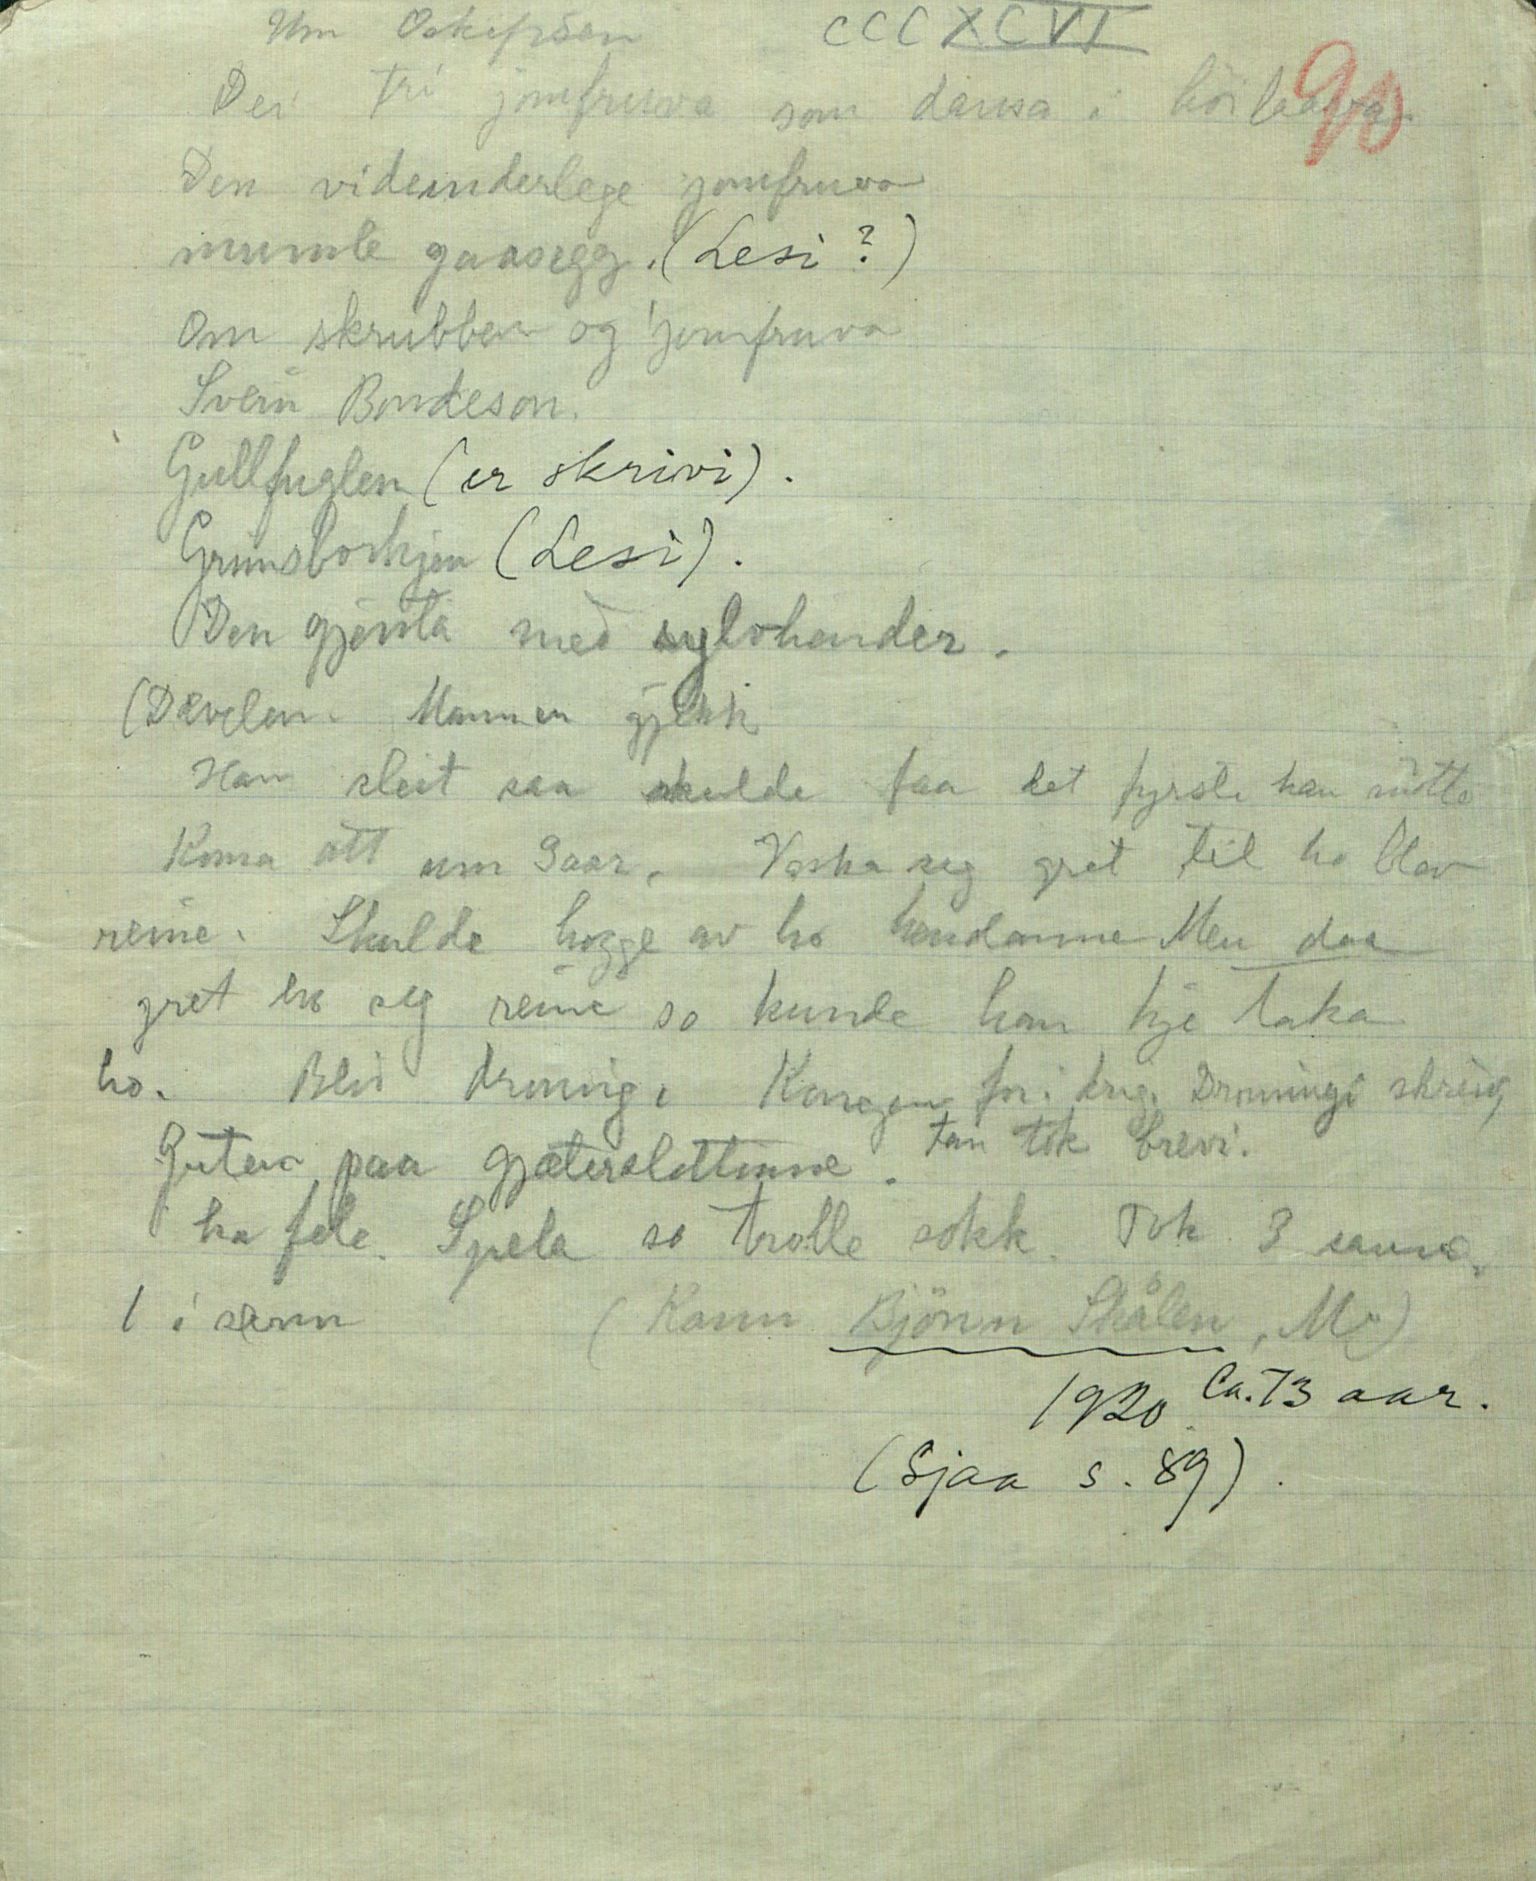 Um Oskefisen CCCXCVI
90
Dei tri jomfruva som dansa i
Den videunderlege jomfruva
mumle gaasegg. (Lesi?)
Om skrubben og jomfruva
Svein Bondeson.
Gullfuglen (er skrivi).
Grimsborkjen (Lesi).
Den gjenta med sylvhender.
(Dævelen. Mannen gjekk
Han sleit saa skulde faa det fyrste han møtte
Koma att um 3 aar. Vaska seg gret til ho blev
reine. Skulde hogge av ho hendanne Men daa
gret ho seg reine so kunde han kje taka
ho. Blei droning. Kongen for i krig. Droningi skreiv,
Guten paa gjæterslottinne. Fan tok brevi.
ha fele. Spela so trolle sokk. Tok 3 sauna,
1 i senn (Kann Björnn Skålen, Mo)
1920 Ca. 73 aar.
(Sjaa s. 89).